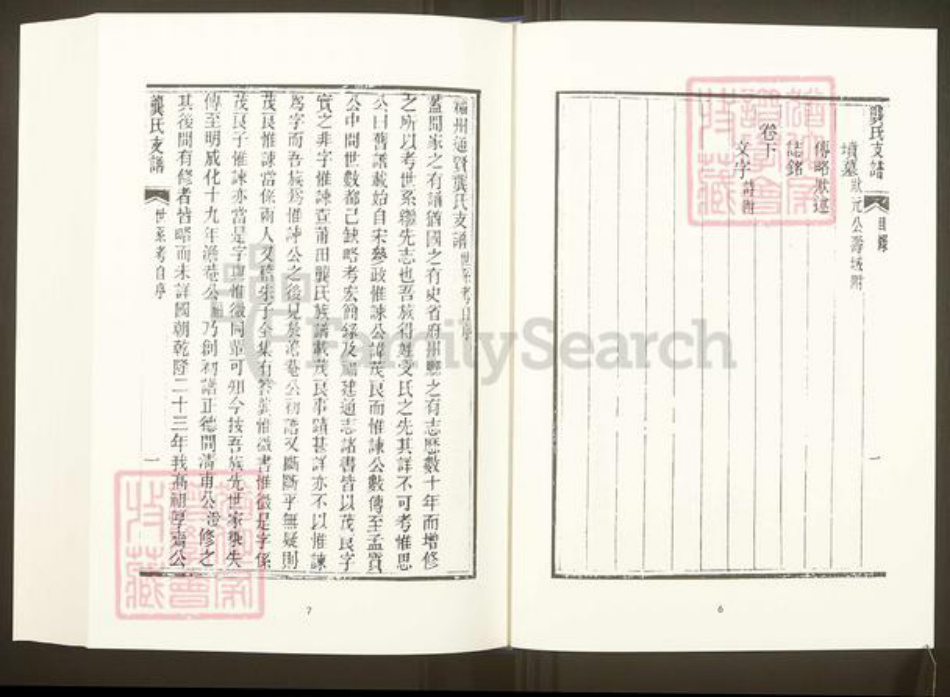 龔氏支譜
目錄
一
墳墓 狀元公壽域附
傳略 狀述
誌銘
卷下
文字 詩附
6
福州通賢龔氏支譜世系考自序
蓋聞家之有譜猶國之有史省府州縣之有志歷數十年而增修
之所以考世系繼先志也吾族得姓受氏之先其詳不可考惟思
公曰舊譜載始自宋參政惟諫公諱茂良而惟諫公數傳至孟賓
公中間世數都已缺略考宏簡錄及福建通志諸書皆以茂良字
實之非字惟諫查莆田龔氏族譜載茂良事蹟甚詳亦不以惟諫
為字而吾族為惟諫公之後見於滄菴公初譜又斷斷乎無疑則
茂良惟諫當係兩人又稽朱子全集有答龔惟微書惟微是字係
茂良子惟諫亦當是字與惟微同輩可知今按吾族先世家乘失
傳至明成化十九年滄菴公 乃創初譜正德間清甫公澄修之
其後間有修者皆略而未詳國朝乾隆二十三年我高祖厚齋公
龔氏支譜
世系考自序
一
7
FamilySearch